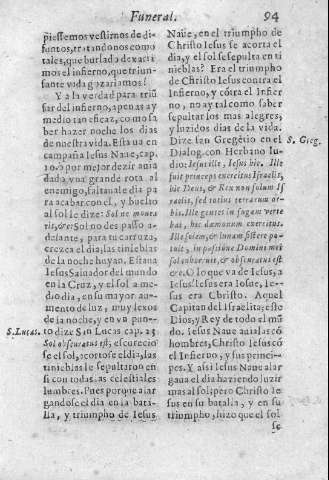 Funeral. 94
pieſſemos veſtirnos de di-
funtos, tratandonos como
tales, que burlado dexaramos
mos el infierno, que triun-
fante vida gozariamos!
Y a la verdad para triũ
far del infierno, apenas ay
medio tan eficaz, como ſa
ber hazer noche los dias
de nueſtra vida. Eſtaua en
campaña Ieſus Naue, cap.
10. o por mejor dezir ania
dada vna grande rota al
enemigo, faltauale dia pa
ra acabar con el, y buelto
al ſol le dize: Sol ne mouea
ris, &c. Sol no des paſſo a-
delante, para tu carroza,
crezca el dia, las tinieblas
de la noche huyan. Eſtaua
Ieſus Saluador del mundo
en la Cruz, y el ſol a me-
dio dia, en ſu mayor au-
mento de luz, muy lexos
de la noche, y en vn pun-
S. Lucas. to dize San Lucas cap. 23
Sol obſcuratus eſt, eſcurecio
ſe el ſol, acortoſe el dia, las
tinieblas le ſepultaron en
ſi con todas as celeſtiales
lumbres. Pues porque alar
gandoſe el dia en la bata-
lla, y triumpho de Ieſus
Naue, en el triumpho de
Chriſto Ieſus ſe acorta el
dia, y el ſol ſe ſepulta en ti
nieblas? Era el triumpho
de Chriſto Ieſus contra el
Infierno, y cõtra el Infier
no, no ay tal como ſaber
ſepultar los mas alegres,
y luzidos dias de la vida.
Dize ſan Gregẽtio en el S. Greg.
Dialog. con Herbano Iu-
dio: Ieſus ille, Ieſus hic. Ille
fuit princeps exercitus Iſraelis,
hic Deus, & Rex non ſolum Iſ
raelis, ſed totius terrarum or-
bis. Ille gentes in fugam verte
bat, hic dæmonum exercitus.
Ille ſolem, & lunam ſiſtere po-
tuit, in paſsione Domini mei
ſol exhorruit, & obſcuratus eſt
&c. O lo que va de Ieſus, a
Ieſus! Ieſus era Ioſue, Ie-
ſus era Chriſto. Aquel
Capitan del Iſraelita; eſto
Dios, y Rey de todo el mũ
do. Ieſus Naue auialas cõ
hombres, Chriſto Ieſus cõ
el Infierno, y ſus princi-
pes. Y aſsi Ieſus Naue alar
gaua el dia haziendo luzir
mas al ſol; pero Chriſto Ie
ſus en ſu batalla, y en ſu
triumpho, hizo que el ſol
ſe